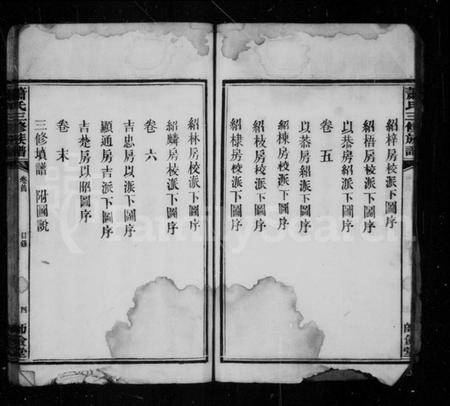 蕭氏三修族譜
紹梓房校派下圖序
紹梧房紹派下圖序
以恭房紹派下圖序
卷五
以恭房紹派下圖序
紹棟房校派下圖序
紹枝房校派下圖序
紹棣房校派下圖序
紹林房校派下圖序
紹麟房校派下圖序
卷六
吉忠房以派下圖序
顯通房吉派下圖序
吉楚房以昭圖序
卷末
三修墳譜 附圖說
蕭氏三修族譜
卷首
目錄
四
師儉堂
FamilySearch